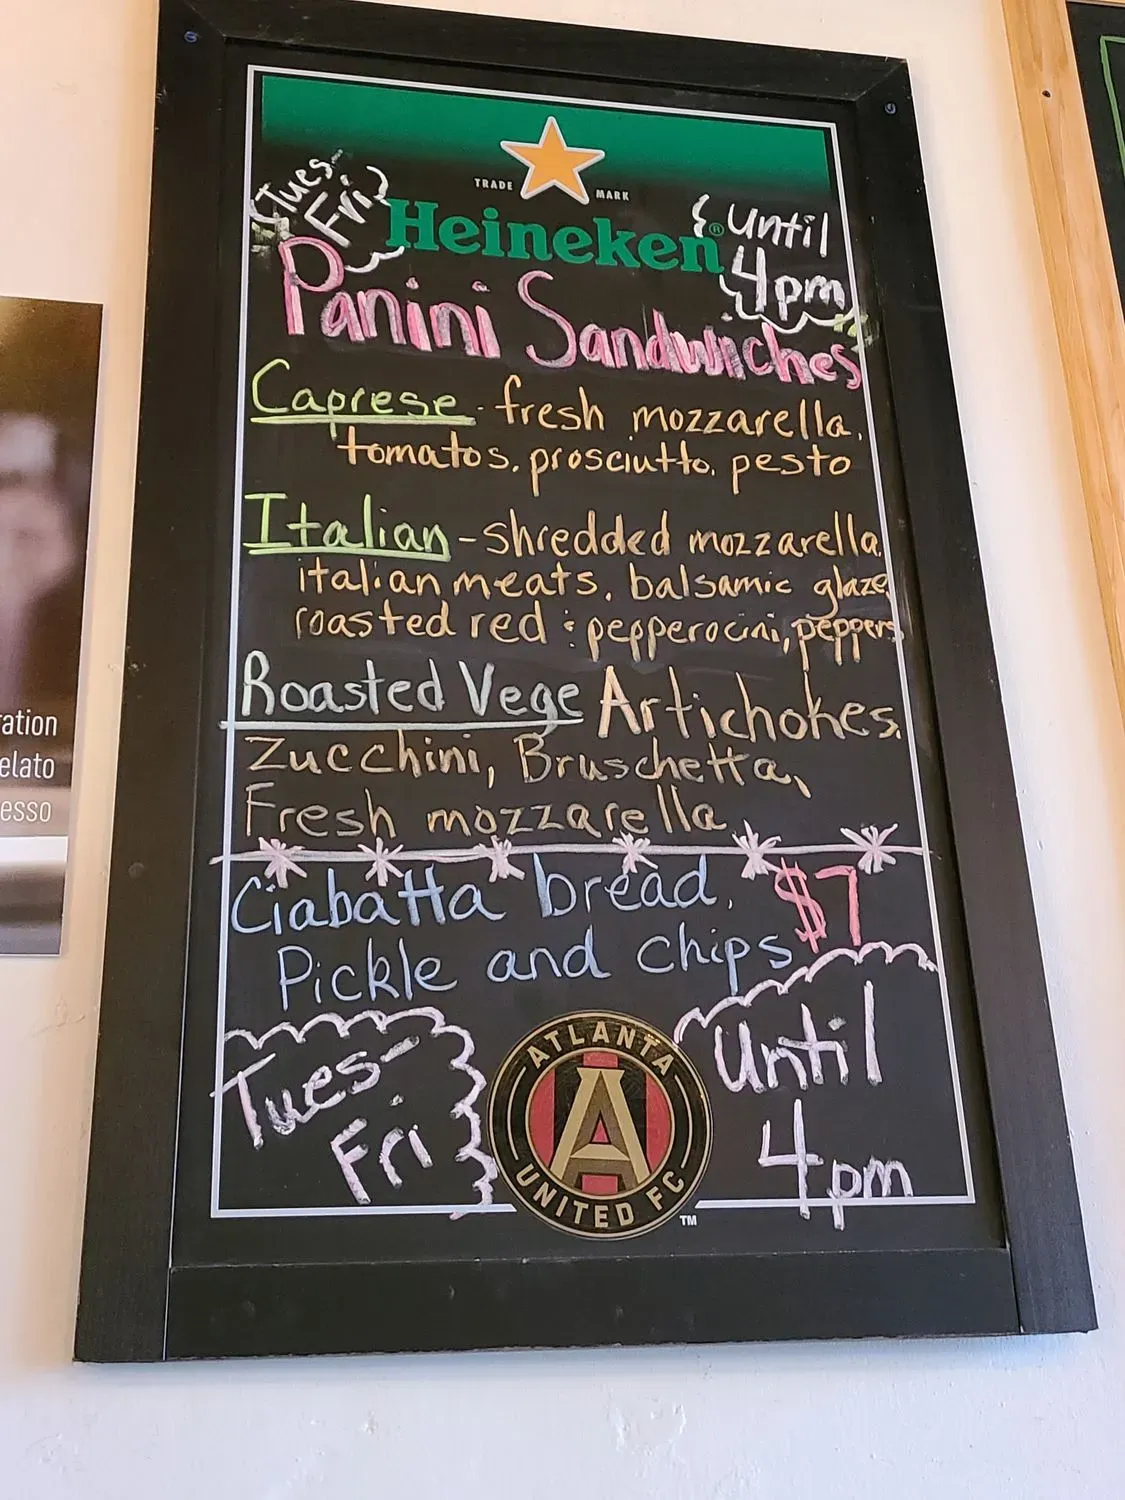 TRADE MARK
Tues-
Fri
Heineken®
until
4pm
Panini Sandwiches
Caprese - fresh mozzarella,
tomatos, prosciutto, pesto
Italian - shredded mozzarella
italian meats, balsamic glaze,
roasted red & pepperocini, peppers
Roasted Vege Artichokes,
Zucchini, Bruschetta,
Fresh mozzarella
Ciabatta bread, $7
Pickle and chips
Tues-
Fri
ATLANTA
A
UNITED FC
TM
until
4pm
ration
elato
esso